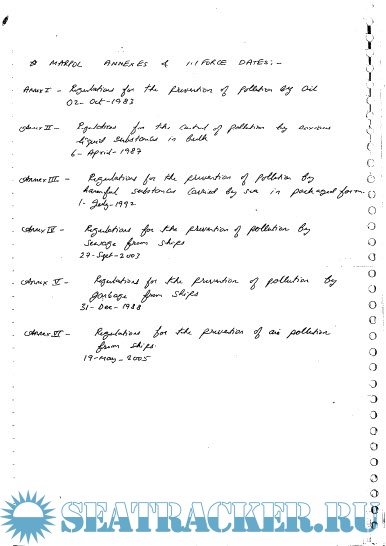 * MARPOL ANNEXES & IN FORCE DATES:-
Annex I - Regulations for the prevention of pollution by oil
02-Oct-1983
Annex II - Regulations for the control of pollution by noxious
liquid substances in bulk
6-April-1987
Annex III - Regulations for the prevention of pollution by
harmful substances carried by sea in packaged form.
1-July-1992
Annex IV - Regulations for the prevention of pollution by
sewage from ships
27-Sept-2003
Annex V - Regulations for the prevention of pollution by
garbage from ships
31-Dec-1988
Annex VI - Regulations for the prevention of air pollution
from ships.
19-May-2005
SEATRACKER.RU